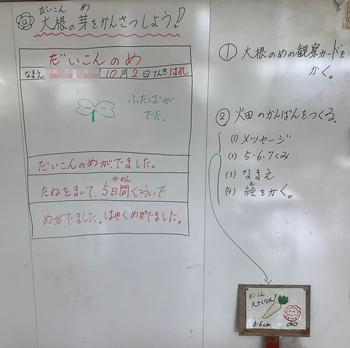 だいこん め
大根の芽をかんさつしよう!
だいこんのめ
なまえ 10月2日 てんき はれ
ふたばが
でた。
だいこんのめがでました。
たねをまいて、5日間ぐらいで
かかん
めがでました。はやくめがでました。
① 大根のめの観察カードを
かく。
② 畑のかんばんをつくる。
(1) メッセージ
(2) 5・6・7くみ
(3) なまえ
(4) 絵をかく。
だいこん
大きくなれ!